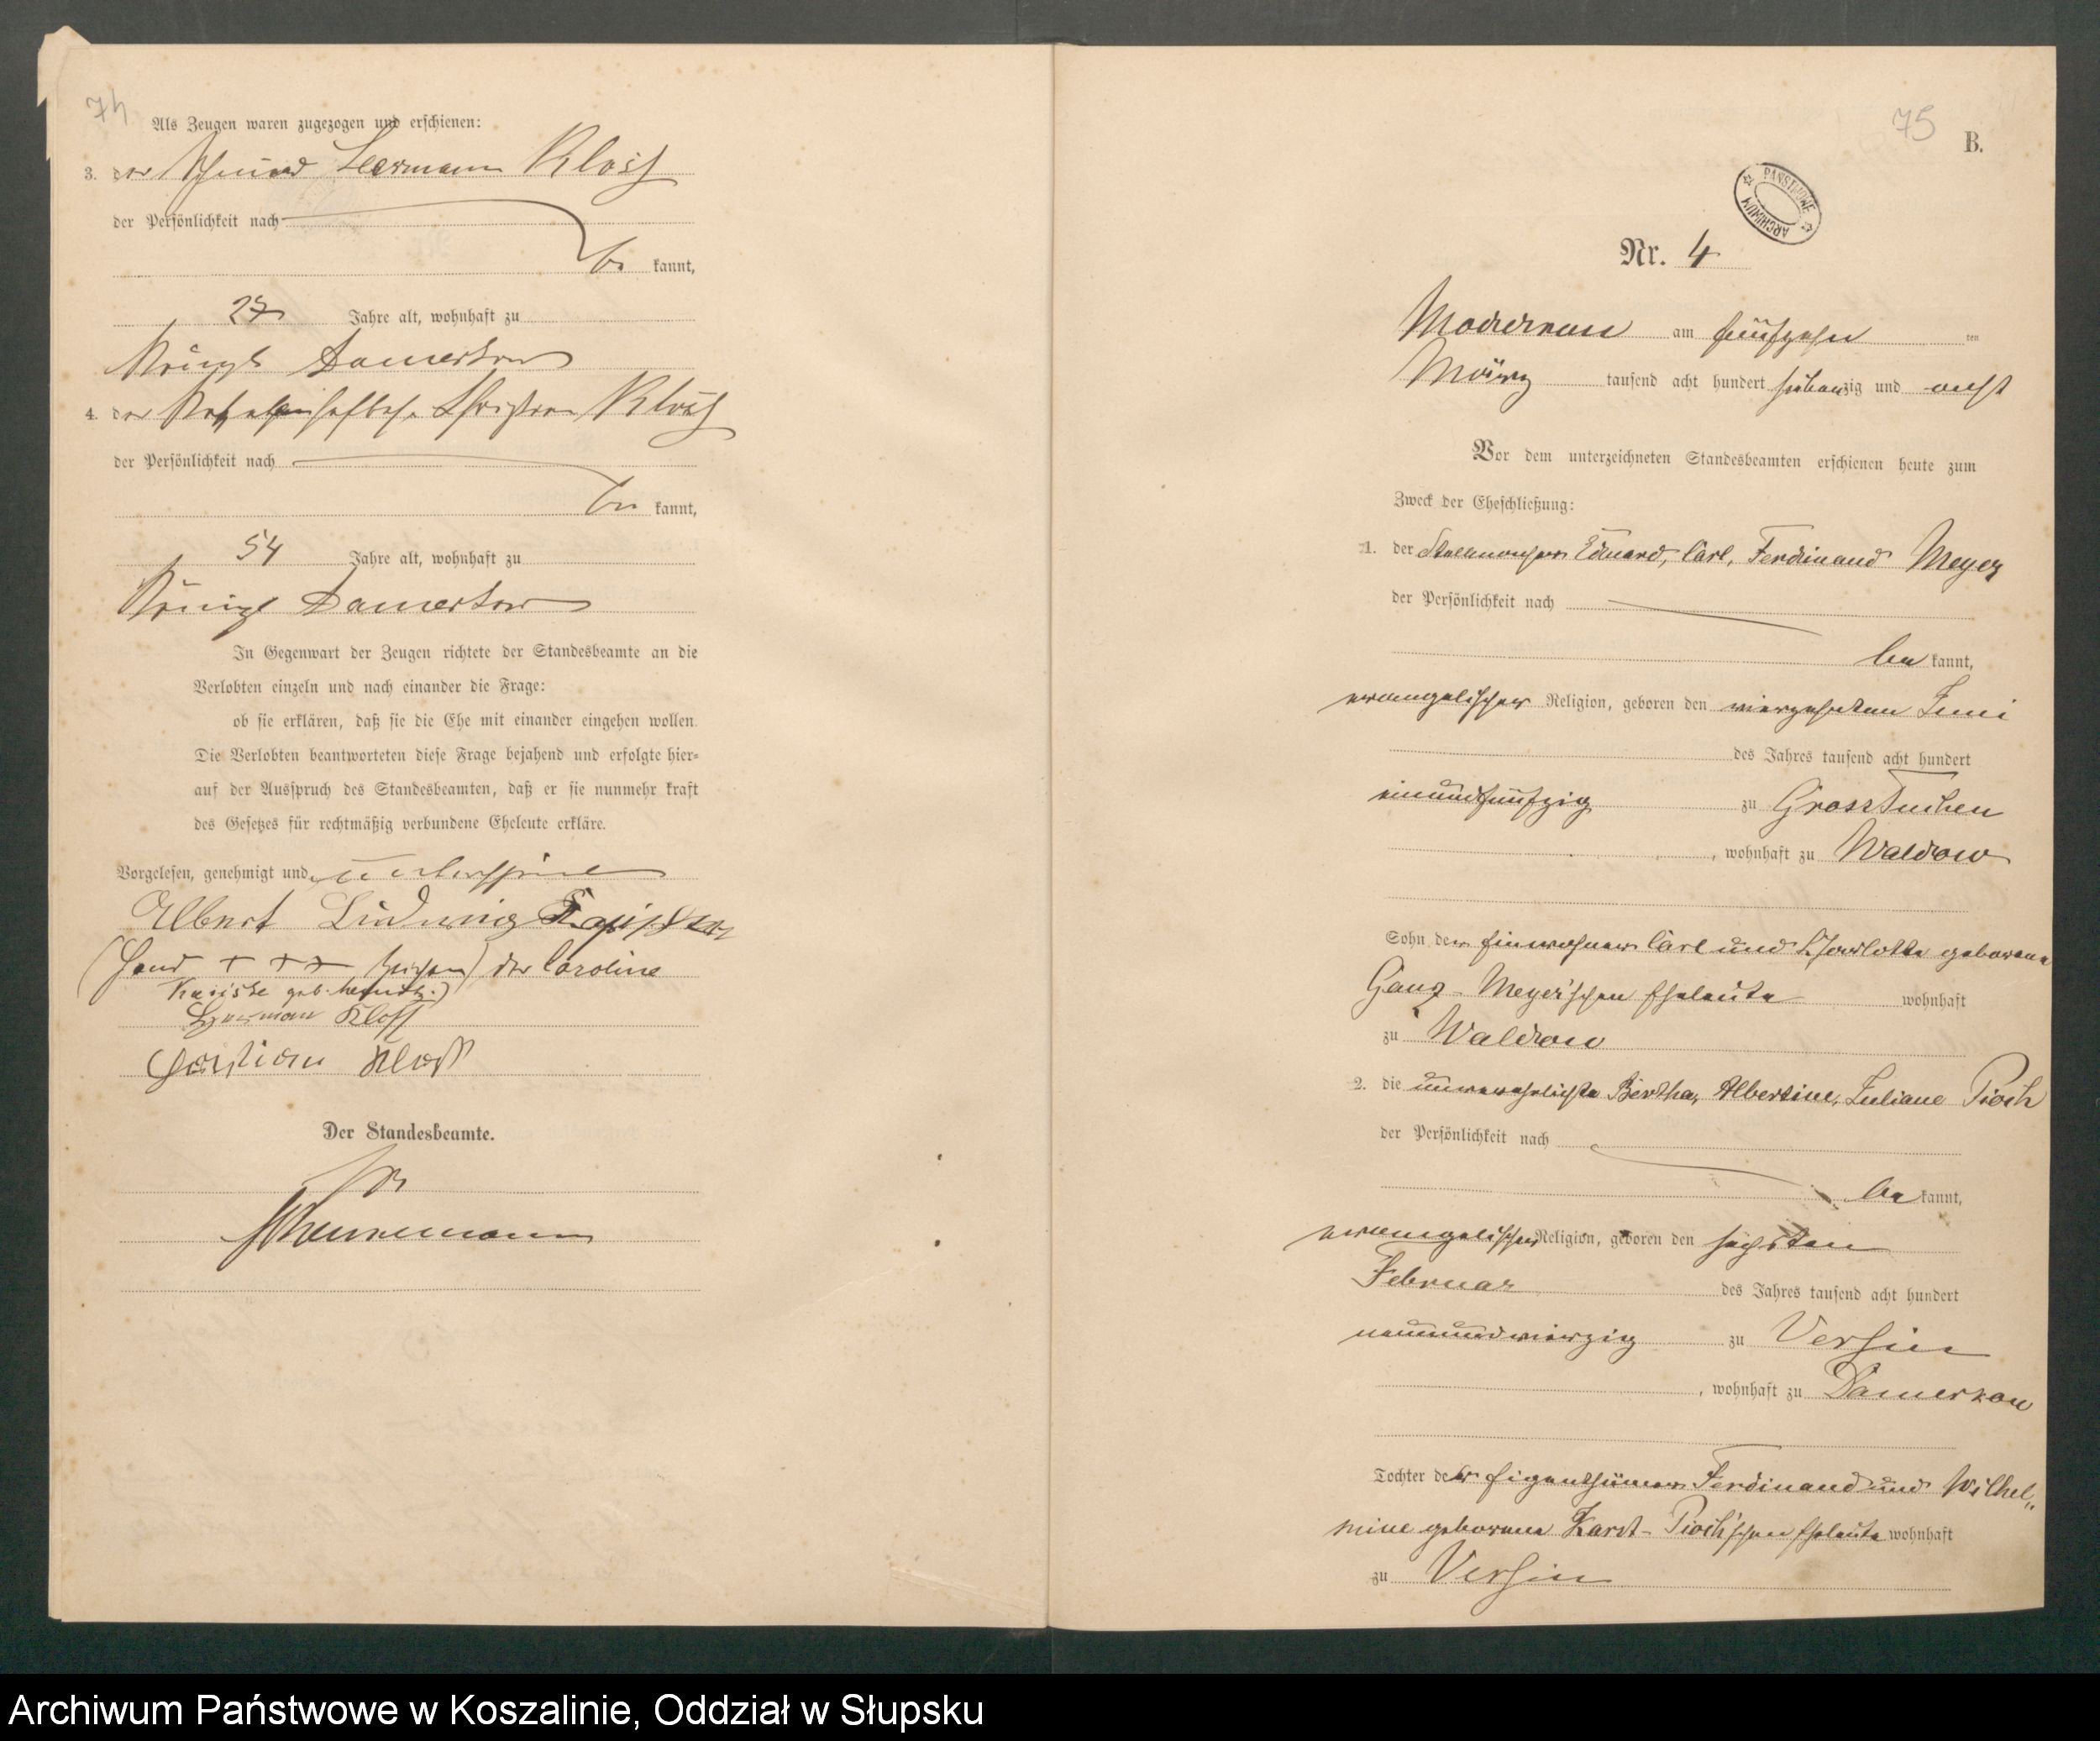 74
Als Zeugen waren zugezogen und erschienen:
3. der Schmied Herrmann Kloss
der Persönlichkeit nach
be kannt,
27 Jahre alt, wohnhaft zu
Königl Damerkow
4. der Christian Kloss
der Persönlichkeit nach
be kannt,
54 Jahre alt, wohnhaft zu
Königl Damerkow
In Gegenwart der Zeugen richtete der Standesbeamte an die
Verlobten einzeln und nach einander die Frage:
ob sie erklären, daß sie die Ehe mit einander eingehen wollen.
Die Verlobten beantworteten diese Frage bejahend und erfolgte hier-
auf der Ausspruch des Standesbeamten, daß er sie nunmehr kraft
des Gesetzes für rechtmäßig verbundene Eheleute erkläre.
Vorgelesen, genehmigt und unterschrieben
Albert Ludwig
(Hand + + + Zeichen) der Caroline
geb.
Herrman Kloss
Christian Kloss
Der Standesbeamte.
75
B.
PAŃSTWOWE ARCHIWUM
Nr. 4
Modderow am fünfzehn ten
März tausend acht hundert siebenzig und acht
Vor dem unterzeichneten Standesbeamten erschienen heute zum
Zweck der Eheschließung:
1. der Stellmacher Eduard, Carl, Ferdinand Meyer
der Persönlichkeit nach
be kannt,
evangelischer Religion, geboren den vierzehnten Juni
des Jahres tausend acht hundert
einundfünfzig zu Gross Tuchen
, wohnhaft zu Waldow
Sohn der Einwohner Carl und Charlotte geborene
Ganz- Meyer'schen Eheleute wohnhaft
zu Waldow
2. die unverehelichte Bertha, Albertine, Juliane Pioch
der Persönlichkeit nach
be kannt,
evangelischer Religion, geboren den sechsten
Februar des Jahres tausend acht hundert
neunundvierzig zu Versin
, wohnhaft zu Damerkow
Tochter der Eigenthümer Ferdinand und Wilhel„
mine geborene Karst- Pioch'schen Eheleute wohnhaft
zu Versin
Archiwum Państwowe w Koszalinie, Oddział w Słupsku